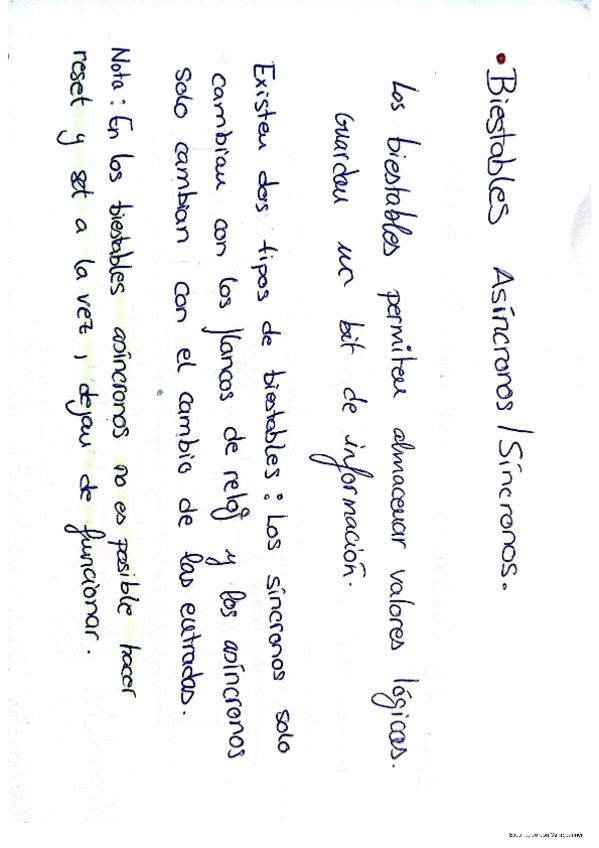 • Biestables Asíncronos / Síncronos.
Los biestables permiten almacenar valores lógicos.
Guardan un bit de información.
Existen dos tipos de biestables: Los síncronos solo
cambian con los flancos de reloj y los asíncronos
solo cambian con el cambio de las entradas.
Nota: En los biestables asíncronos no es posible hacer
reset y set a la vez, dejan de funcionar.